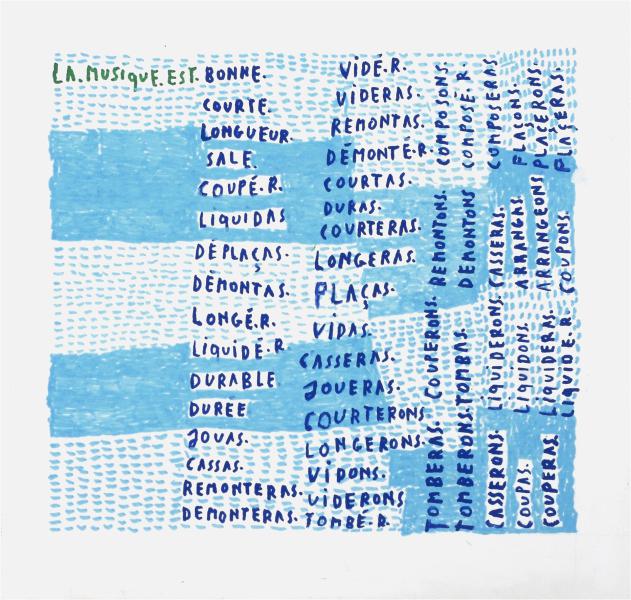 LA.MUSIQUE.EST. BONNE.
COURTE.
LONGUEUR.
SALE.
COUPÉ.R.
LIQUIDAS
DÉPLAÇAS.
DÉMONTAS.
LONGÉ.R.
LIQUIDÉ.R.
DURABLE
DUREE
JOUAS.
CASSAS.
REMONTERAS.
DEMONTERAS.
VIDÉ.R.
VIDERAS.
REMONTAS.
DÉMONTÉ.R.
COURTAS.
DURAS.
COURTERAS.
LONGERAS.
PLAÇAS.
VIDAS.
CASSERAS.
JOUERAS.
COURTERONS.
LONGERONS.
VIDONS.
VIDERONS
TOMBÉ.R.
TOMBERAS. COUPERONS. REMONTONS. COMPOSONS.
TOMBERONS. TOMBAS. DEMONTONS COMPOSÉ.R.
CASSERONS. LIQUIDERONS. CASSERAS. COMPOSERAS
COUPAS. LIQUIDONS. ARRANGAS. PLAÇONS.
COUPERAS. LIQUIDERAS. ARRANGEONS PLAÇERONS.
LIQUIDE.R. COUPONS. PLAÇERAS.